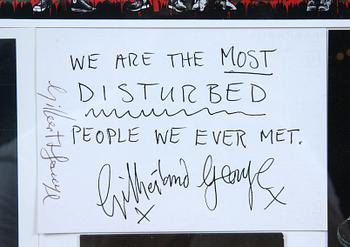 WE ARE THE MOST
DISTURBED
PEOPLE WE EVER MET.
Gilbert and George
x x
Gilbert & George